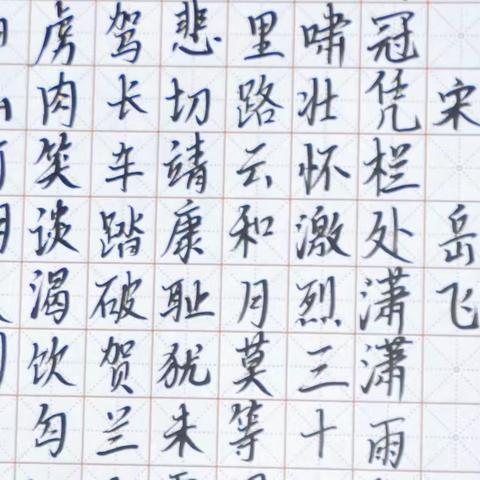 宋岳飞
冠凭栏处潇潇雨
啸壮怀激烈三十
里路云和月莫等
悲切靖康耻犹未
驾长车踏破贺兰
虏肉笑谈渴饮匈